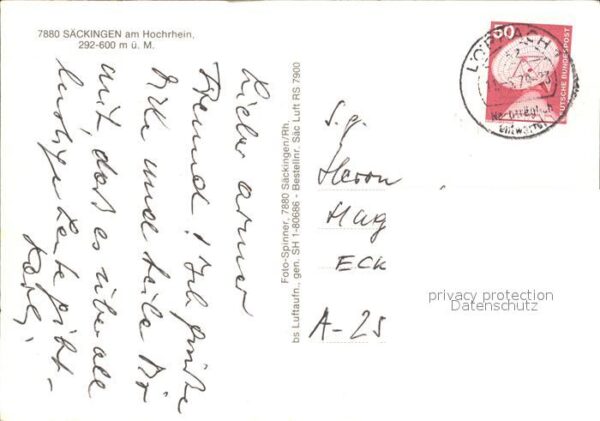 7880 SÄCKINGEN am Hochrhein,
292-600 m ü. M.
Lieber armer
Freund! Ich grüße
Dich und teile Dir
mit, daß es überall
lustige Leute gibt –
Foto-Spinner, 7880 Säckingen/Rh.
bs Luftaufn., gen. SH 1-80686 - Bestellnr. Säc Luft RS 7900
50
DEUTSCHE BUNDESPOST
Nachträglich
entwertet
S.g.
Herrn
Mag
ECK
A-25
privacy protection
Datenschutz